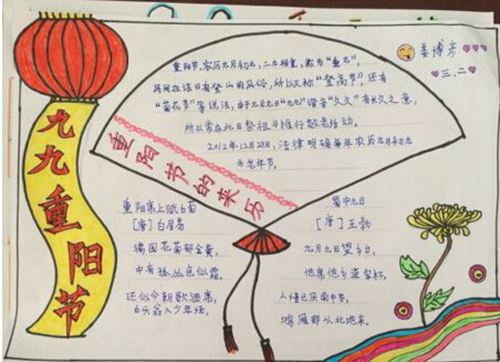 九九重阳节
重阳节的来历
重阳节,农历九月初九,二九相重,称为"重九",
民间在该日有登高的风俗,所以又称"登高节",还有
"菊花节"等说法,由于九月初九"九九"谐音"久久"有长久之意,
所以常在此日祭祖与推行敬老活动。
2012年12月28日,法律明确每年农历九月初九
为老年节。
姜博彦
三、二
重阳席上赋白菊
[唐]白居易
满园花菊郁金黄,
中有孤丛色似霜。
还似今朝歌酒席,
白头翁入少年场。
蜀中九日
[唐]王勃
九月九日望乡台,
他席他乡送客杯。
人情已厌南中苦,
鸿雁那从北地来。